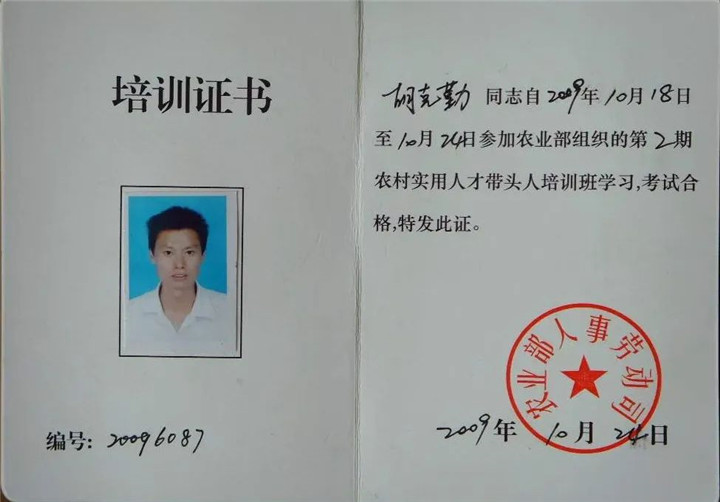 培训证书
编号: 20096087
胡克勤 同志自2009年10月18日
至10月24日参加农业部组织的第2期
农村实用人才带头人培训班学习,考试合
格,特发此证。
农业部人事劳动司
2009年10月24日